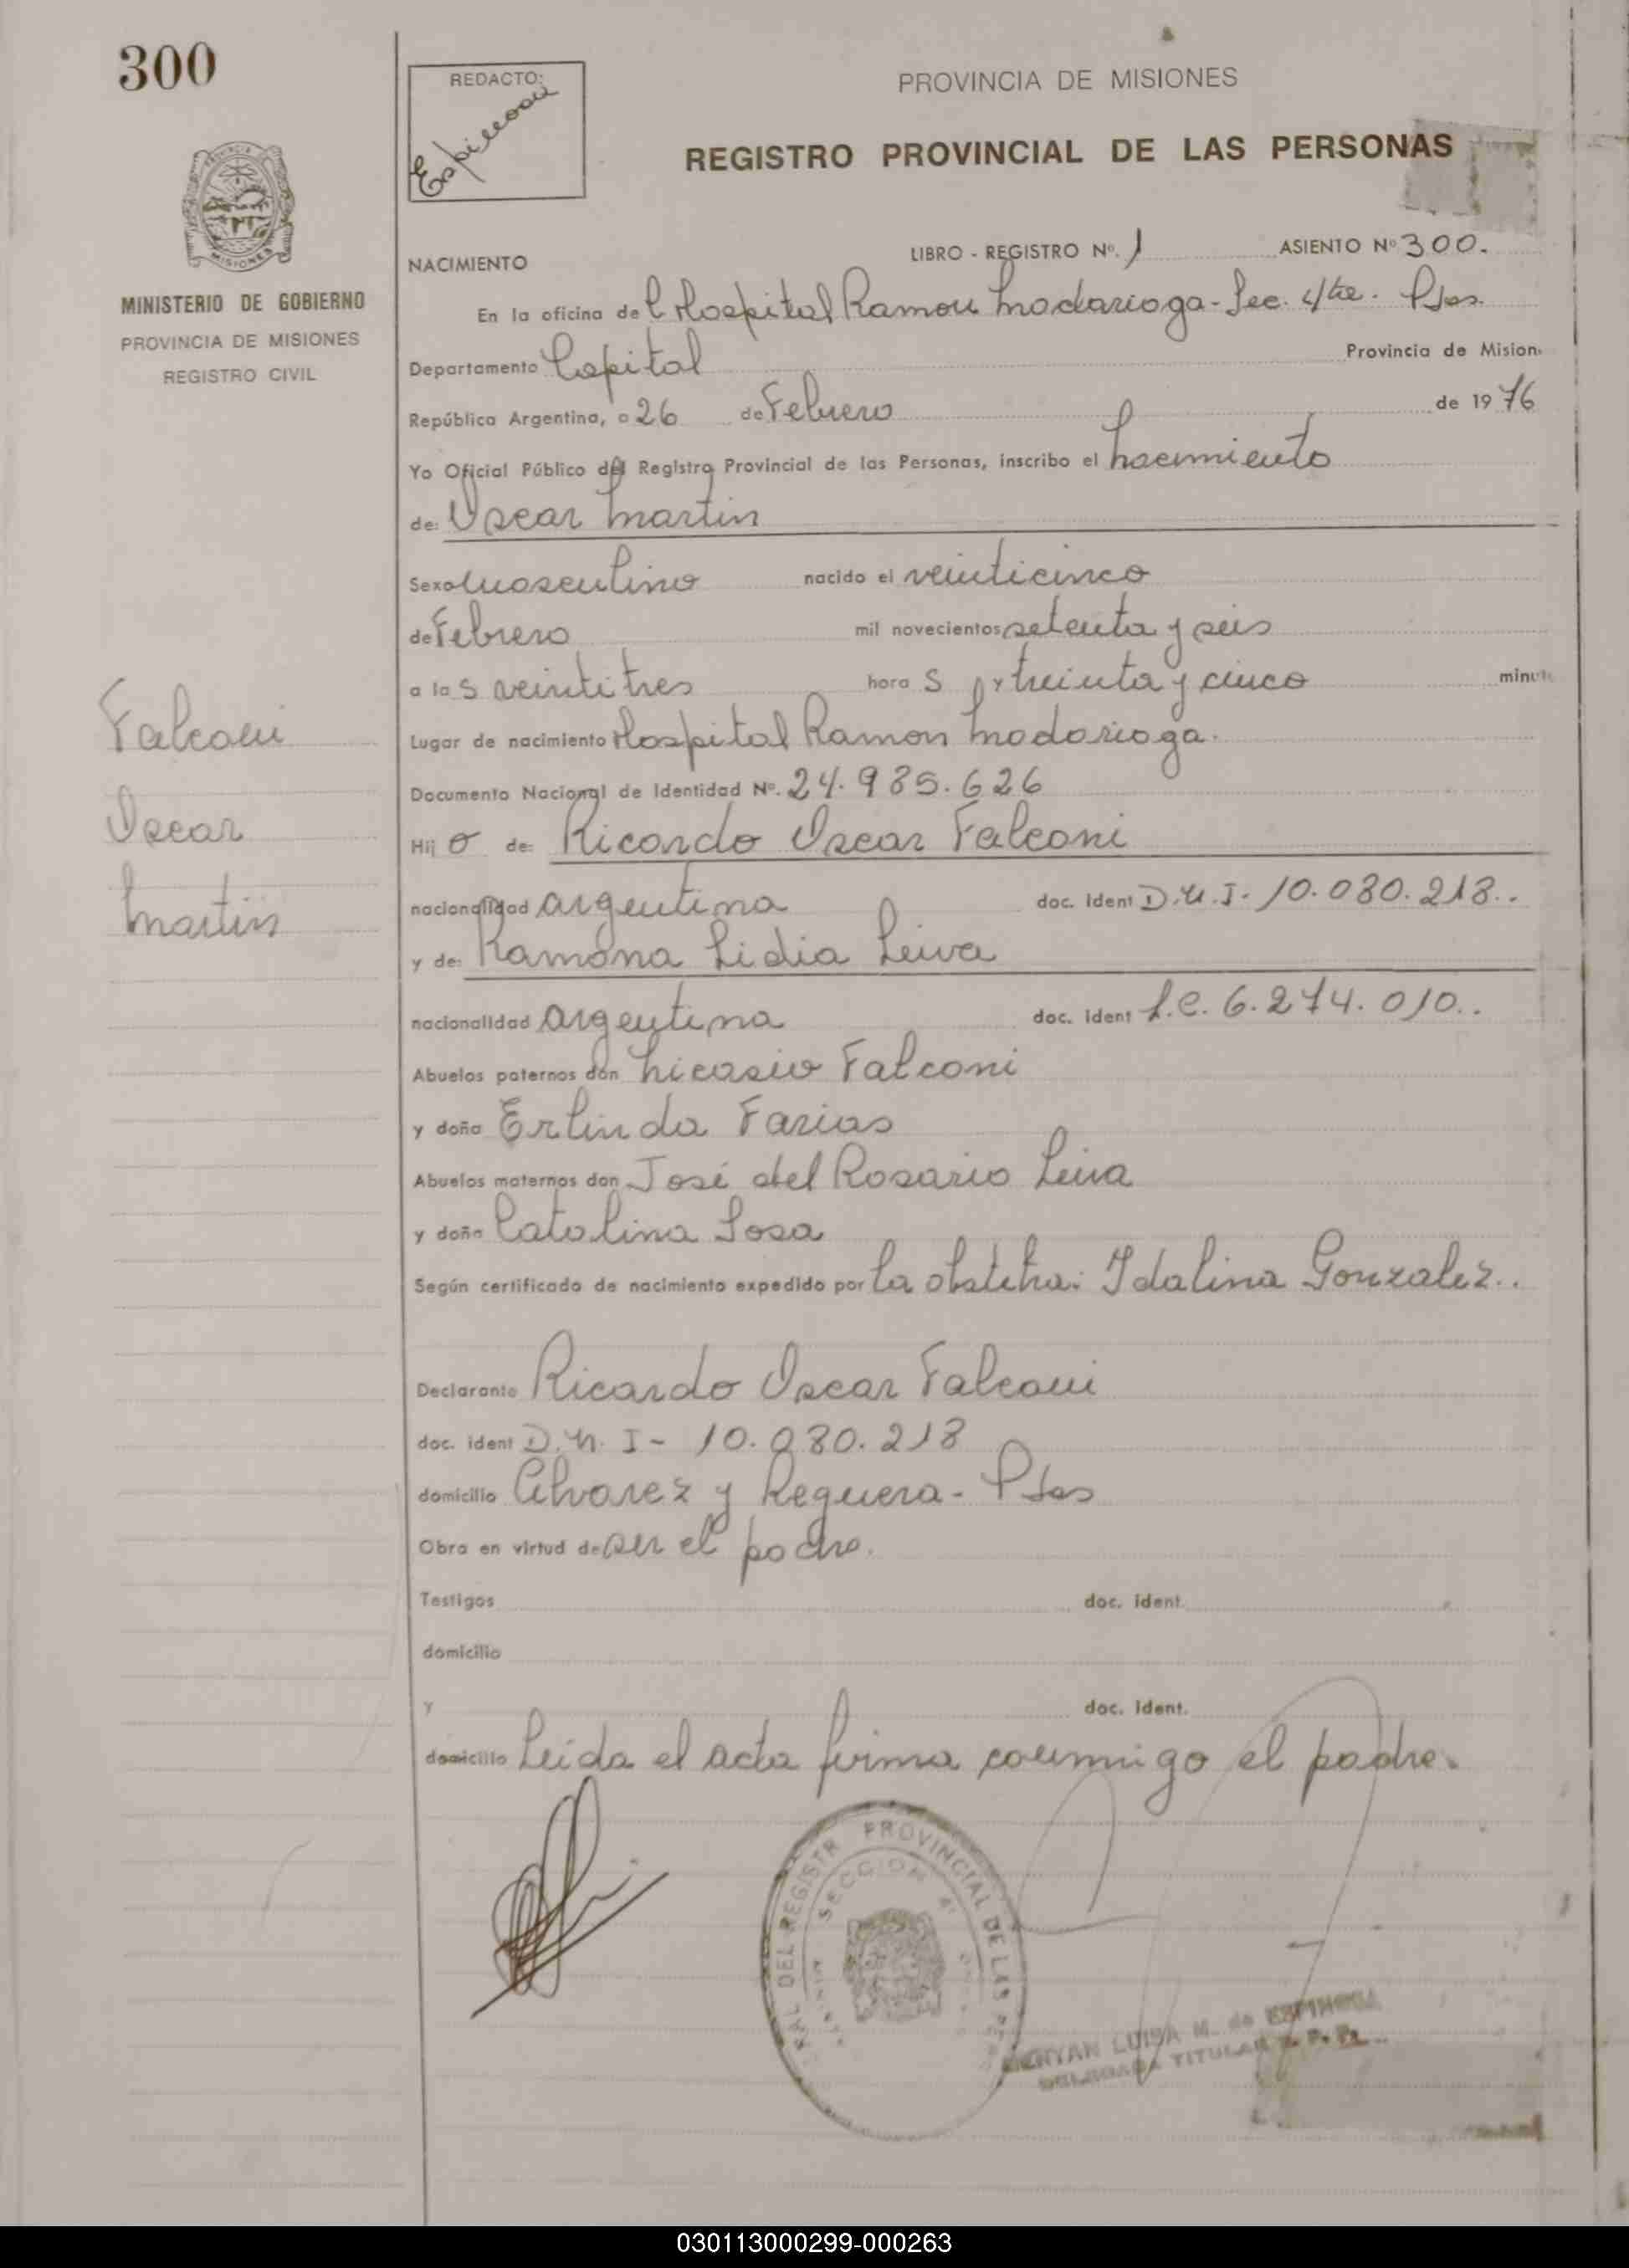 300
REDACTO:
PROVINCIA DE MISIONES
REGISTRO PROVINCIAL DE LAS PERSONAS
MINISTERIO DE GOBIERNO
PROVINCIA DE MISIONES
REGISTRO CIVIL
NACIMIENTO
LIBRO - REGISTRO Nº. 1 ASIENTO Nº 300.
En la oficina de Hospital Ramon Madariaga - Sec. 4ta. Pdas.
Departamento Capital Provincia de Mision
República Argentina, a 26 de Febrero de 1976
Yo Oficial Público del Registro Provincial de las Personas, inscribo el nacimiento
de: Oscar Martin
Sexo masculino nacido el veinticinco
de Febrero mil novecientos setenta y seis
a las veintitres horas y treinta y cinco minut
Lugar de nacimiento Hospital Ramon Madariaga.
Documento Nacional de Identidad Nº. 24.985.626
Hijo de: Ricardo Oscar Falconi
nacionalidad argentina doc. ident D.N.I- 10.080.218..
y de: Ramona Lidia Leiva
nacionalidad argentina doc. ident L.C. 6.274.010..
Abuelos paternos don Nicasio Falconi
y doña Erlinda Farias
Abuelos maternos don José del Rosario Leiva
y doña Catalina Sosa
Según certificado de nacimiento expedido por la obstetra: Idalina Gonzalez..
Declarante Ricardo Oscar Falconi
doc. ident D.N.I- 10.080.218
domicilio Alvarez y Reguera - Pdas
Obra en virtud de ser el padre.
Testigos doc. ident.
domicilio
y doc. ident.
domicilio Leida el acta firma conmigo el padre.
Falconi
Oscar
Martin
PROVINCIAL DE LAS PE
RAL DEL REGISTR
SECCION 4ª
LUISA M. de ESPINOSA
DELEGADA TITULAR R. P. P.
030113000299-000263